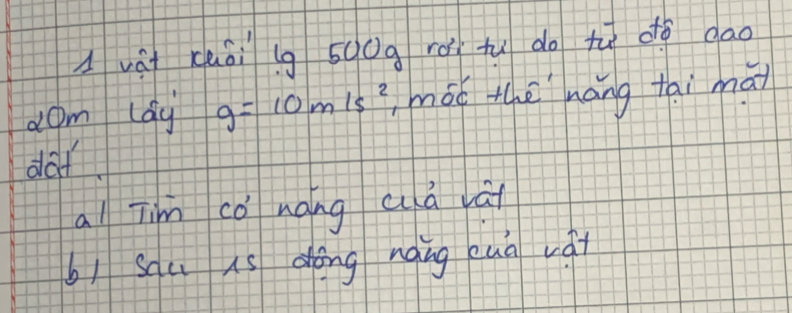 1 vật khối lg 500g rơi tự do từ độ cao
20m lấy g= 10m/s², mốc thế năng tại mặt
đất.
a/ Tìm cơ năng của vật
b/ Sau 1s động năng của vật